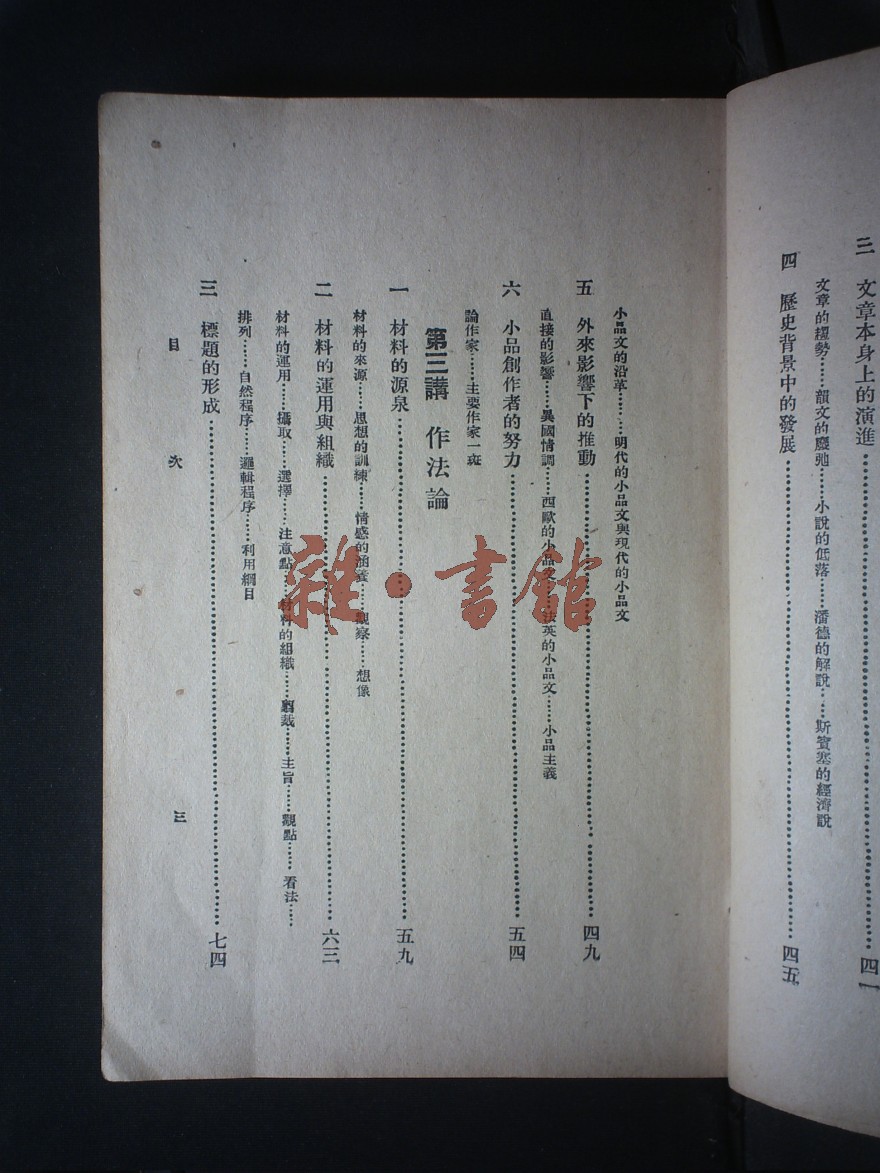 三 文章本身上的演進……四一
文章的趨勢……韻文的廢弛……小說的低落……潘德的解說……斯賓塞的經濟說
四 歷史背景中的發展……四五
小品文的沿革……明代的小品文與現代的小品文
五 外來影響下的推動……四九
直接的影響……異國情調……西歐的小品文……法英的小品文……小品主義
六 小品創作者的努力……五四
論作家……主要作家一斑
第三講 作法論
一 材料的源泉……五九
材料的來源……思想的訓練……情感的涵養……觀察……想像
二 材料的運用與組織……六三
材料的運用……攝取……選擇……注意點……材料的組織……剪裁……主旨……觀點……看法……
排列……自然程序……邏輯程序……利用綱目
三 標題的形成……七四
目次 三
雜·書館